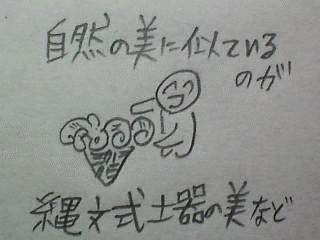 自然の美に似ている
のが
縄文式土器の美など